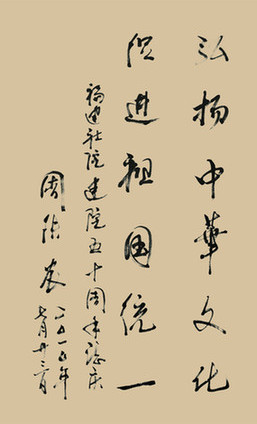 弘扬中華文化
促進祖国统一
福建社院建院五十周年誌庆
周
二〇一五年
七月廿三日